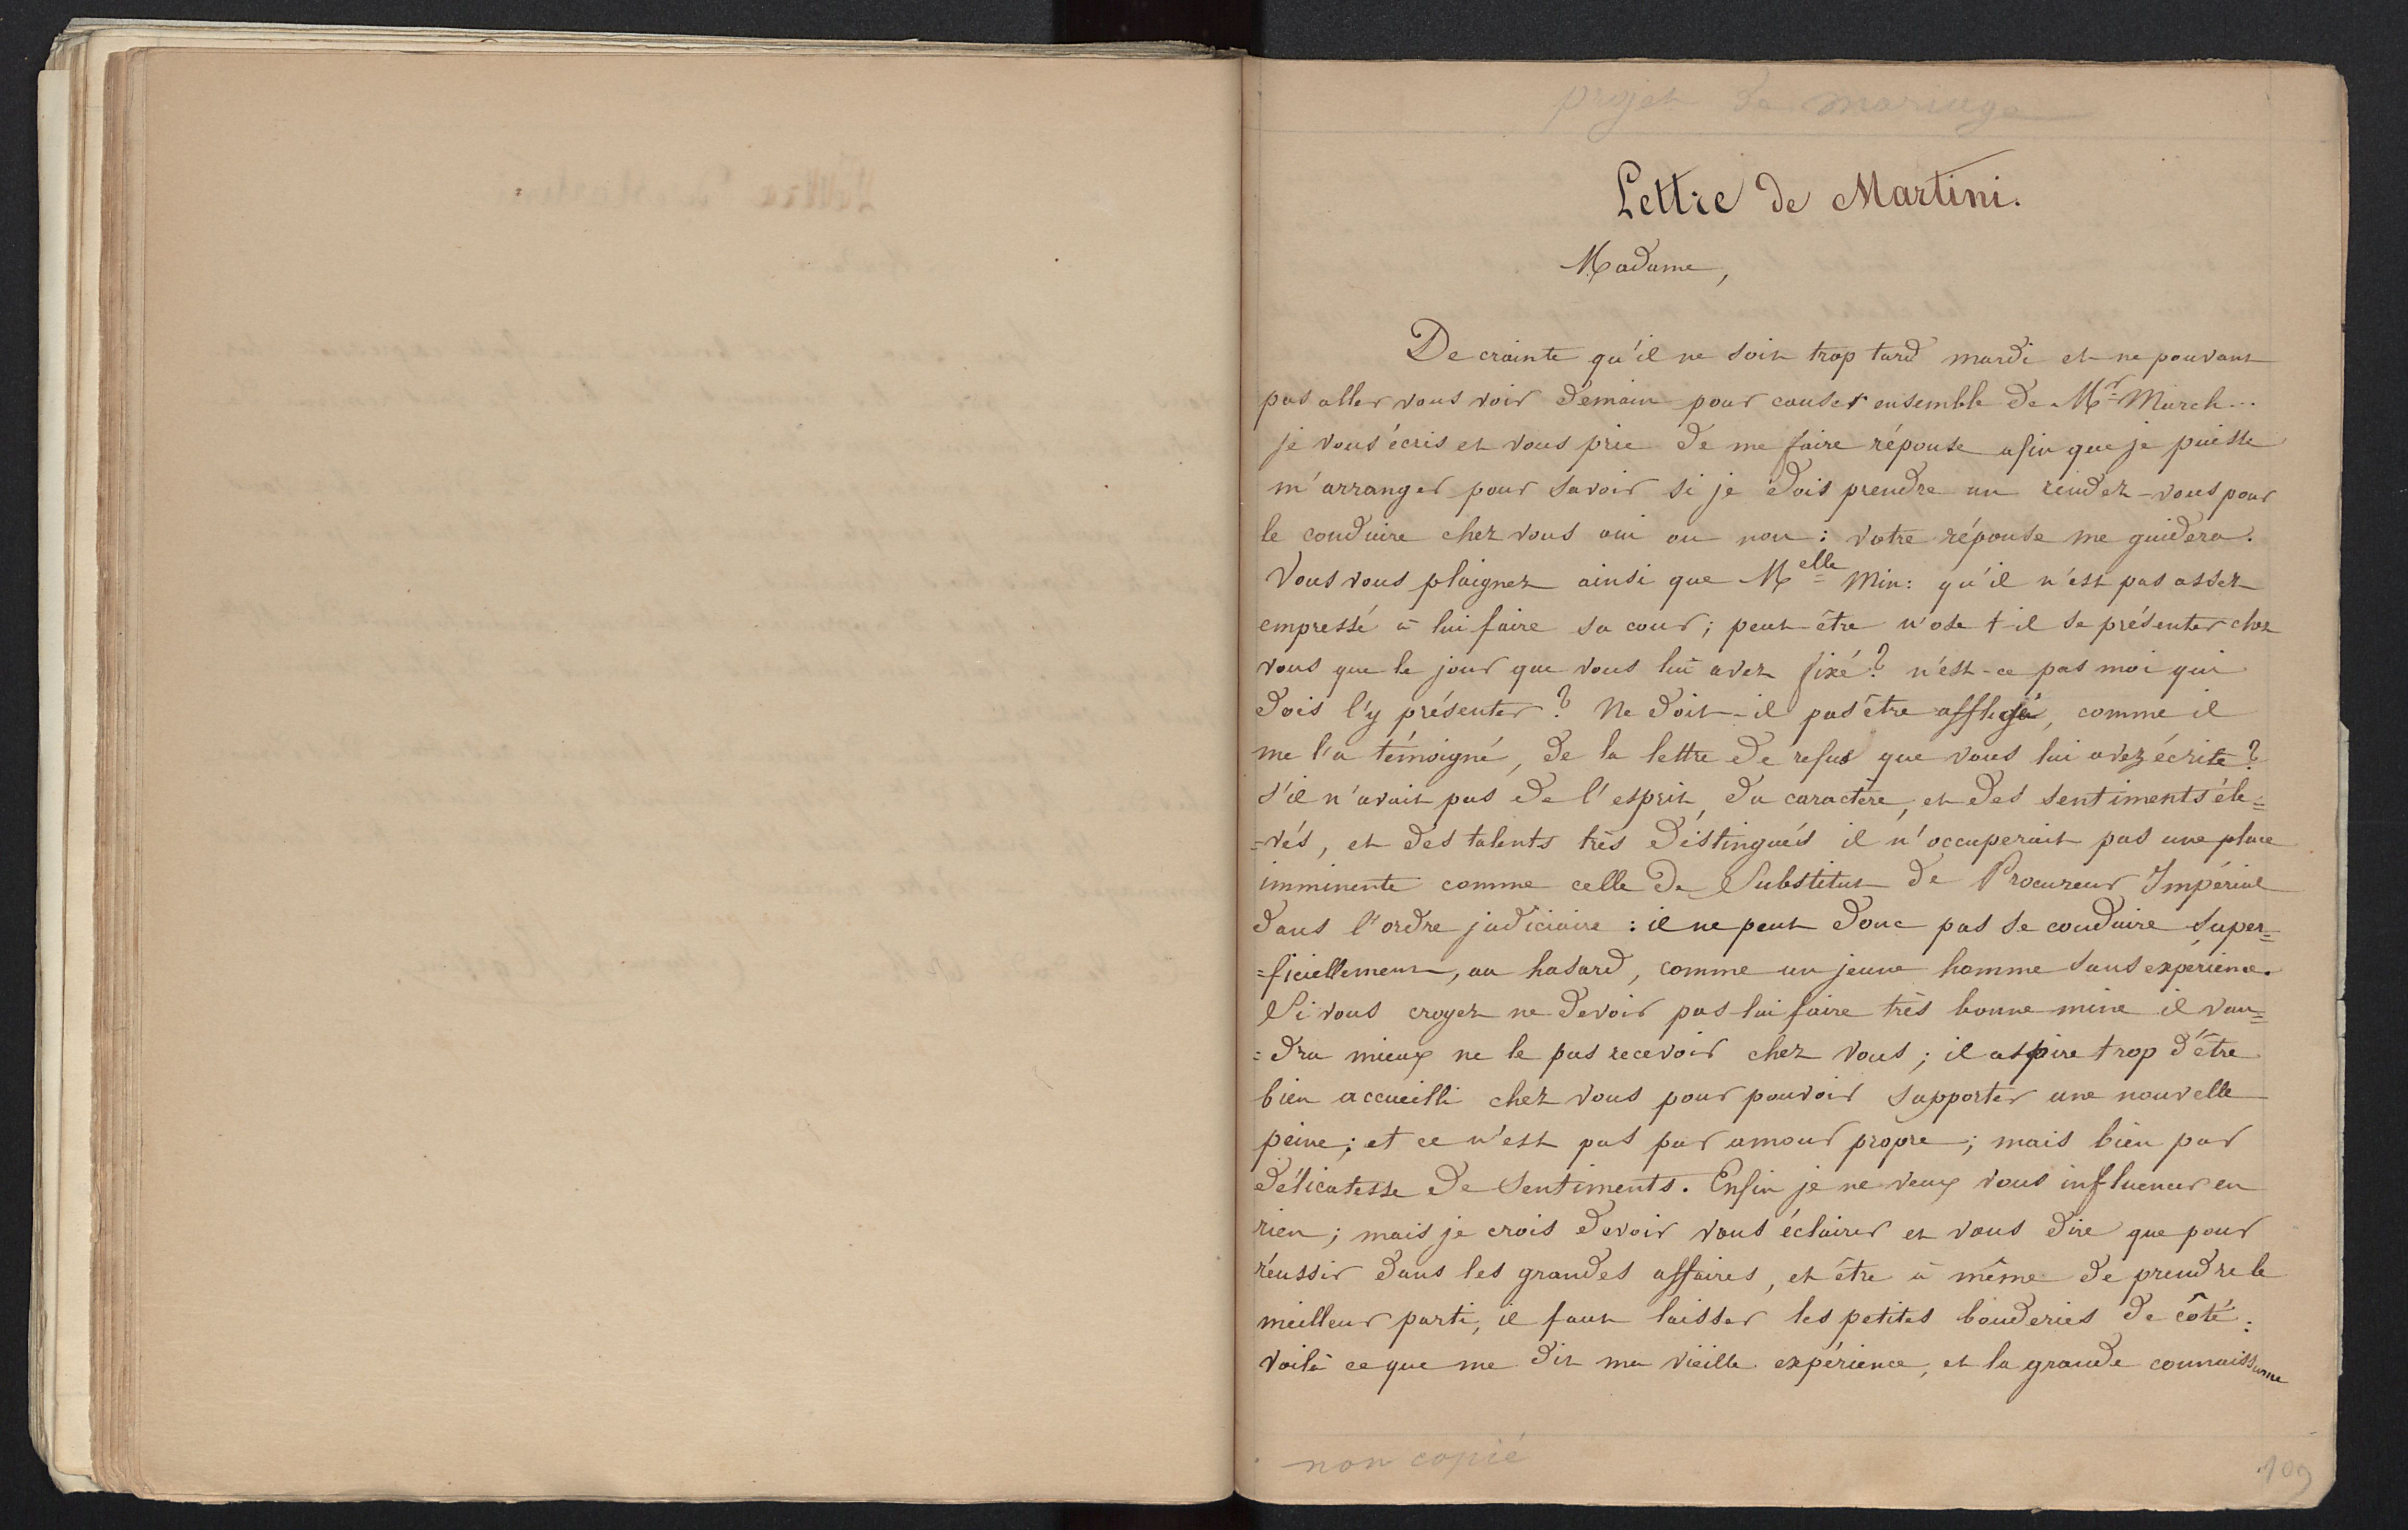 projet de mariage
Lettre de Martini.
Madame,
De crainte qu'il ne soit trop tard mardi et ne pouvant
pas aller vous voir demain pour causer ensemble de Mr March...
je vous écris et vous prie de me faire réponse afin que je puisse
m'arranger pour savoir si je dois prendre un rendez-vous pour
le conduire chez vous oui ou non : votre réponse me guidera.
Vous vous plaignez ainsi que Melle Min: qu'il n'est pas assez
empressé à lui faire sa cour; peut-être n'ose t-il se présenter chez
vous que le jour que vous lui avez fixé? n'est-ce pas moi qui
dois l'y présenter? Ne doit-il pas être affligé, comme il
me l'a témoigné, de la lettre de refus que vous lui avez écrite?
s'il n'avait pas de l'esprit, du caractère, et des sentiments éle=
=vés, et des talents très distingués il n'occuperait pas une place
imminente comme celle de Substitut de Procureur Impérial
dans l'ordre judiciaire : il ne peut donc pas se conduire super=
=ficiellement, au hasard, comme un jeune homme sans expérience.
Si vous croyez ne devoir pas lui faire très bonne mine il vau=
=dra mieux ne le pas recevoir chez vous; il aspire trop d'être
bien accueilli chez vous pour pouvoir supporter une nouvelle
peine; et ce n'est pas par amour propre; mais bien par
délicatesse de sentiments. Enfin je ne veux vous influencer en
rien; mais je crois devoir vous éclairer et vous dire que pour
réussir dans les grandes affaires, et être à même de prendre le
meilleur parti, il faut laisser les petites bouderies de côté:
voilà ce que me dit ma vieille expérience, et la grande connaissance
non copié
109